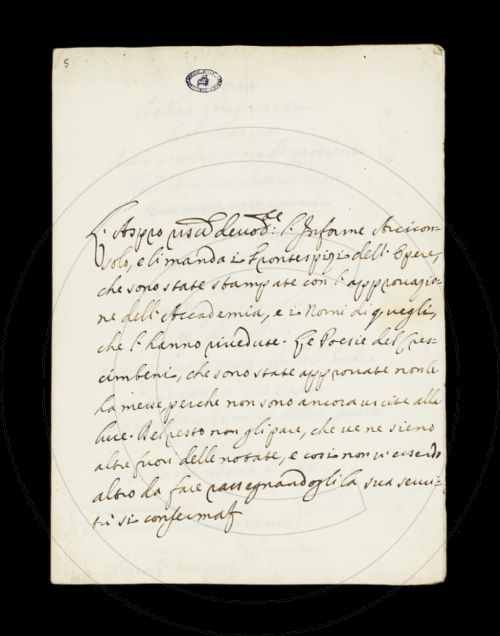 5
L'Aspro riscd deuotme: l'Informe Arcicon-
solo, e li manda i Frontespizi dell'Opere,
che sono state stampate con l'approuazio-
ne dell'Accademia, e i Nomi di quegli,
che l'hanno riuedute. Le Poesie del Cres-
cimbeni, che sono state approuate non le
ha messe, perche non sono ancora uscite alla
luce. Del resto non gli pare, che ue ne sieno
altre fuori delle notate, e cosi non ui essendo
altro da fare rassegnandogli la sua serui-
tù si conferma